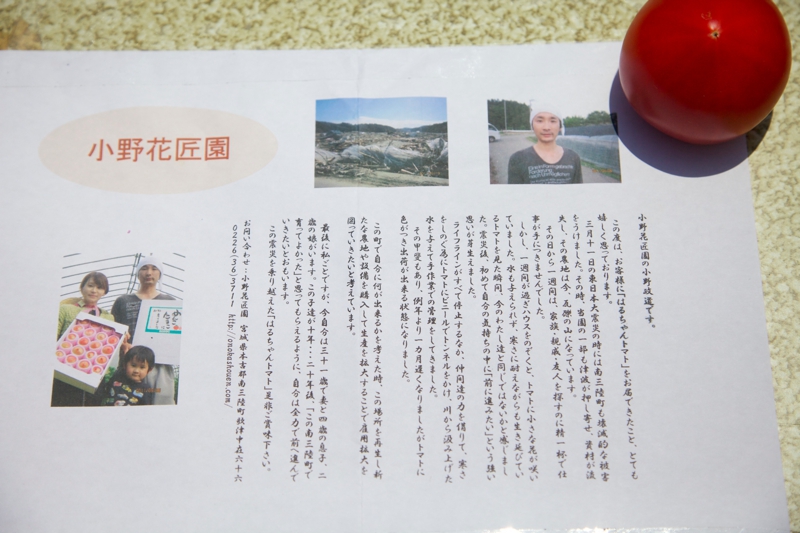 小野花匠園
小野花匠園の小野政道です。
この度は、お客様に「はるちゃんトマト」をお届できたこと、とても
嬉しく思っております。
三月十一日の東日本大震災の時には南三陸町も壊滅的な被害
をうけました。その時、当園の一部も津波が押し寄せ、資材が流
失し、その農地は今、瓦礫の山になっています。
その日から一週間は、家族・親戚・友人を探すのに精一杯で仕
事が手につきませんでした。
しかし、一週間が過ぎハウスをのぞくと、トマトに小さな花が咲い
ていました。水も与えられず、寒さに耐えながらも生き延びてい
るトマトを見た瞬間、今のわたし達と同じではないかと感じまし
た。震災後、初めて自分の気持ちの中に「前に進みたい」という強い
思いが芽生えました。
ライフラインがすべて停止するなか、仲間達の力を借りて、寒さ
をしのぐ為にトマトにビニールでトンネルをかけ、川から汲み上げた
水を与えて手作業での管理をしてきました。
その甲斐もあり、例年より一カ月遅くなりましたがトマトに
色がつき出荷が出来る状態になりました。
この町で自分に何が出来るかを考えた時、この場所を再生し新
たな農地や設備を購入して生産を拡大することで雇用拡大を
図っていきたいと考えています。
最後に私ごとですが、今自分は三十一歳で妻と四歳の息子、二
歳の娘がいます。この子達が十年・・二十年後、「この南三陸町で
育ってよかった」と思ってもらえるように、自分は全力で前へ進んで
いきたいとおもいます。
この震災を乗り越えた「はるちゃんトマト」是非ご賞味下さい。
お問い合わせ：小野花匠園 宮城県本吉郡南三陸町歌津中在六十六
0226(36)3711 http://onohashouen.com/